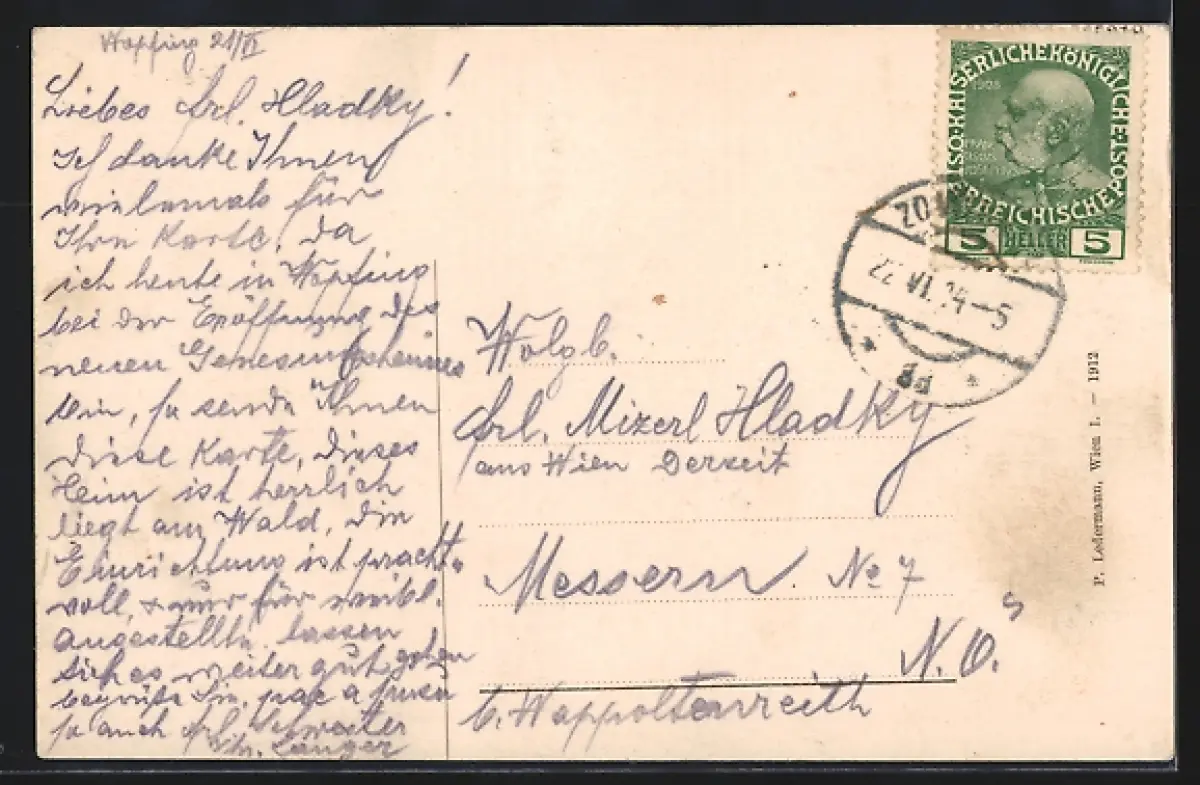 Wopfing 21/VI
Liebes Frl. Hladky!
Ich danke Ihnen
vielemals für
Ihre Karte, da
ich heute in Wopfing
bei der Eröffnung des
neuen Genesungsheimes
bin, so sende Ihnen
diese Karte, dieses
Heim ist herrlich
liegt am Wald, die
Einrichtung ist pracht-
voll, & nur für weibl.
Angestellte. lassen
sich es weiter gut gehen
begrüße Sie,
so auch Frl. Schwester
Langer
KAISERLICHE KÖNIGLICHE ÖSTERREICHISCHE POST
1908
5 HELLER 5
22 VI. 14-5
Wolgb.
Frl. Mizerl Hladky
aus Wien Derzeit
Messern No 7
N. Ö.
b. Wappoltenreith
P. Ledermann, Wien I. — 1912